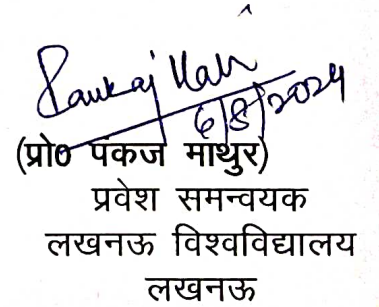 Pankaj Mathur
6/8/2024
(प्रो0 पंकज माथुर)
प्रवेश समन्वयक
लखनऊ विश्वविद्यालय
लखनऊ